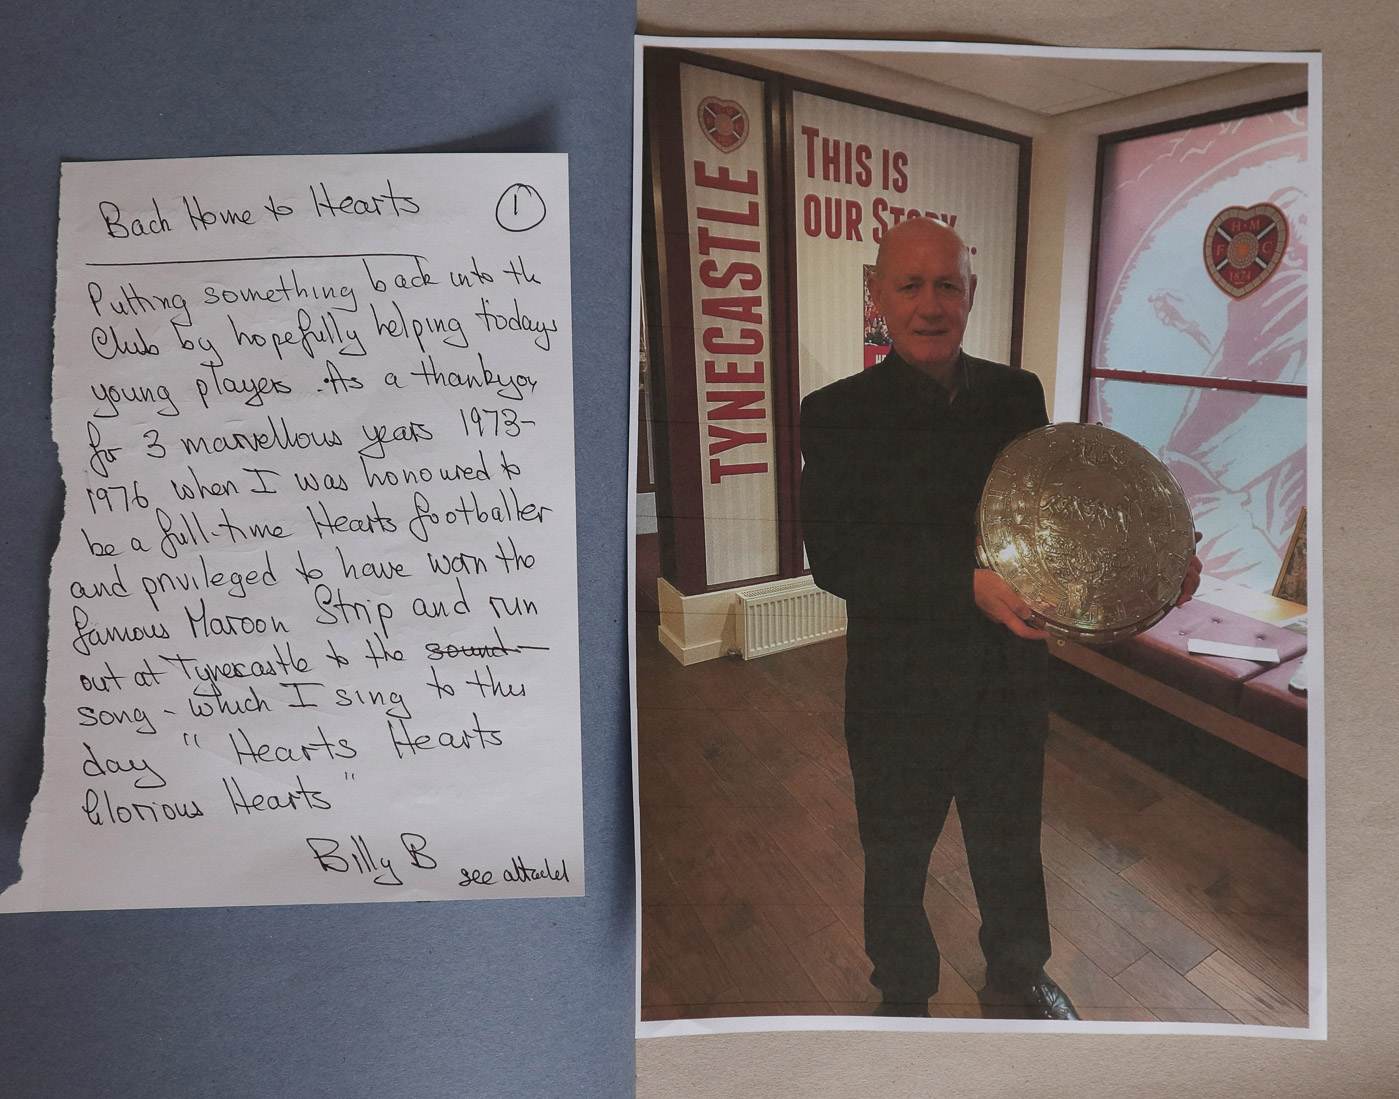 Back Home to Hearts
1
Putting something back into the
Club by hopefully helping todays
young players. As a thankyou
for 3 marvellous years 1973-
1976 when I was honoured to
be a full-time Hearts footballer
and privileged to have worn the
famous Maroon Strip and run
out at Tynecastle to the sound
song - which I sing to this
day " Hearts Hearts
Glorious Hearts "
Billy B
see attached
TYNECASTLE
THIS IS
OUR STORY...
H M
F C
1874